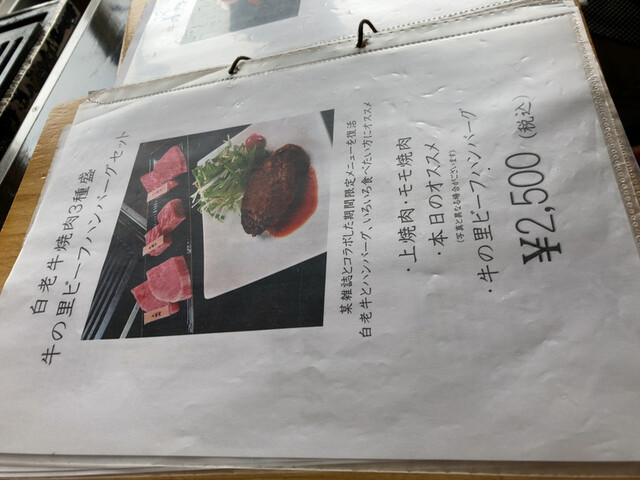 白老牛焼肉3種盛
牛の里ビーフハンバーグセット
某雑誌とコラボした期間限定メニューを復活
白老牛とハンバーグ、いろいろ食べたい方にオススメ
・上焼肉・モモ焼肉
・本日のオススメ
(写真と異なる場合がございます)
・牛の里ビーフハンバーグ
¥2,500(税込)